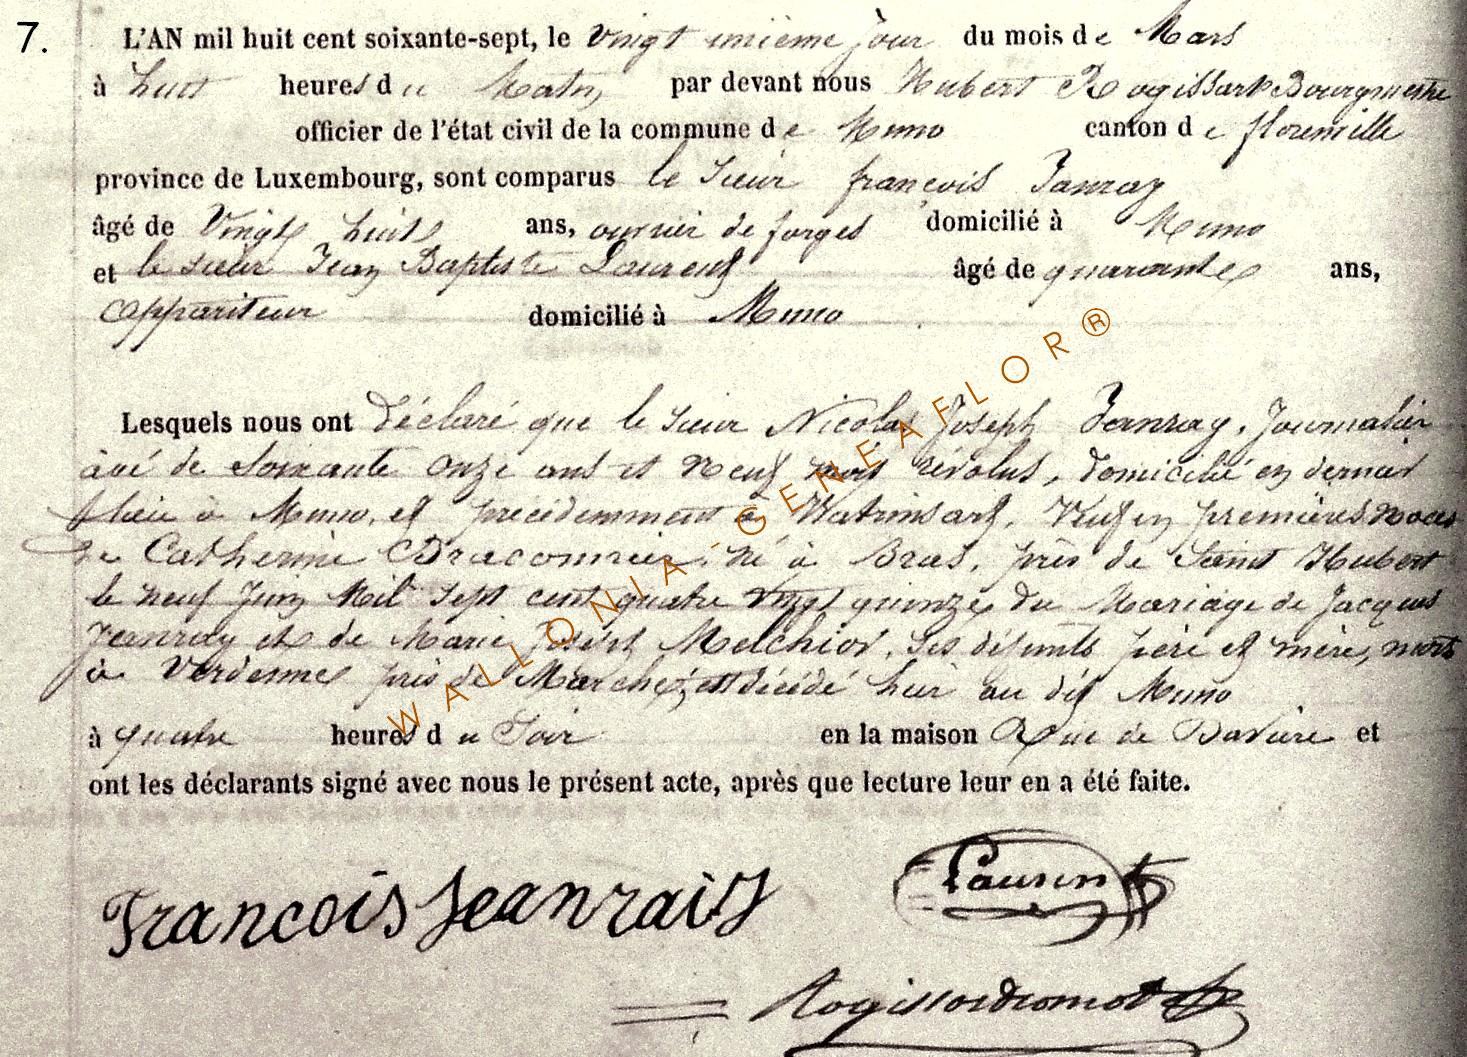 7.
L'AN mil huit cent soixante-sept, le Vingt unième jour du mois de Mars
à huit heures du Matin, par devant nous Hubert Rogissart Bourgmestre
officier de l'état civil de la commune de Muno canton de florenville
province de Luxembourg, sont comparus le Sieur françois Janray
âgé de Vingt huit ans, ouvrier de forges domicilié à Muno
et le sieur Jean Baptiste Laurent âgé de quarante ans,
appariteur domicilié à Muno
Lesquels nous ont déclaré que le sieur Nicolas Joseph Janray, Journalier
âgé de Soixante onze ans et Neuf mois révolus, domicilié en dernier
lieu à Muno, et précédemment à Watrinsart, Veuf en premières noces
de Catherine Draconnier, né à Bras, près de Saint Hubert
le neuf Juin Mil sept cent quatre vingt quinze, du Mariage de Jacques
Jeanray et de Marie Joseph Melchior, ses défunts père et mère, morts
à Verdenne près de Marche, est décédé hier au dit Muno
à quatre heures du Soir en la maison Rue de Bavière et
ont les déclarants signé avec nous le présent acte, après que lecture leur en a été faite.
WALLONIA-GENEAFLOR®
Francois Jeanray
Laurent